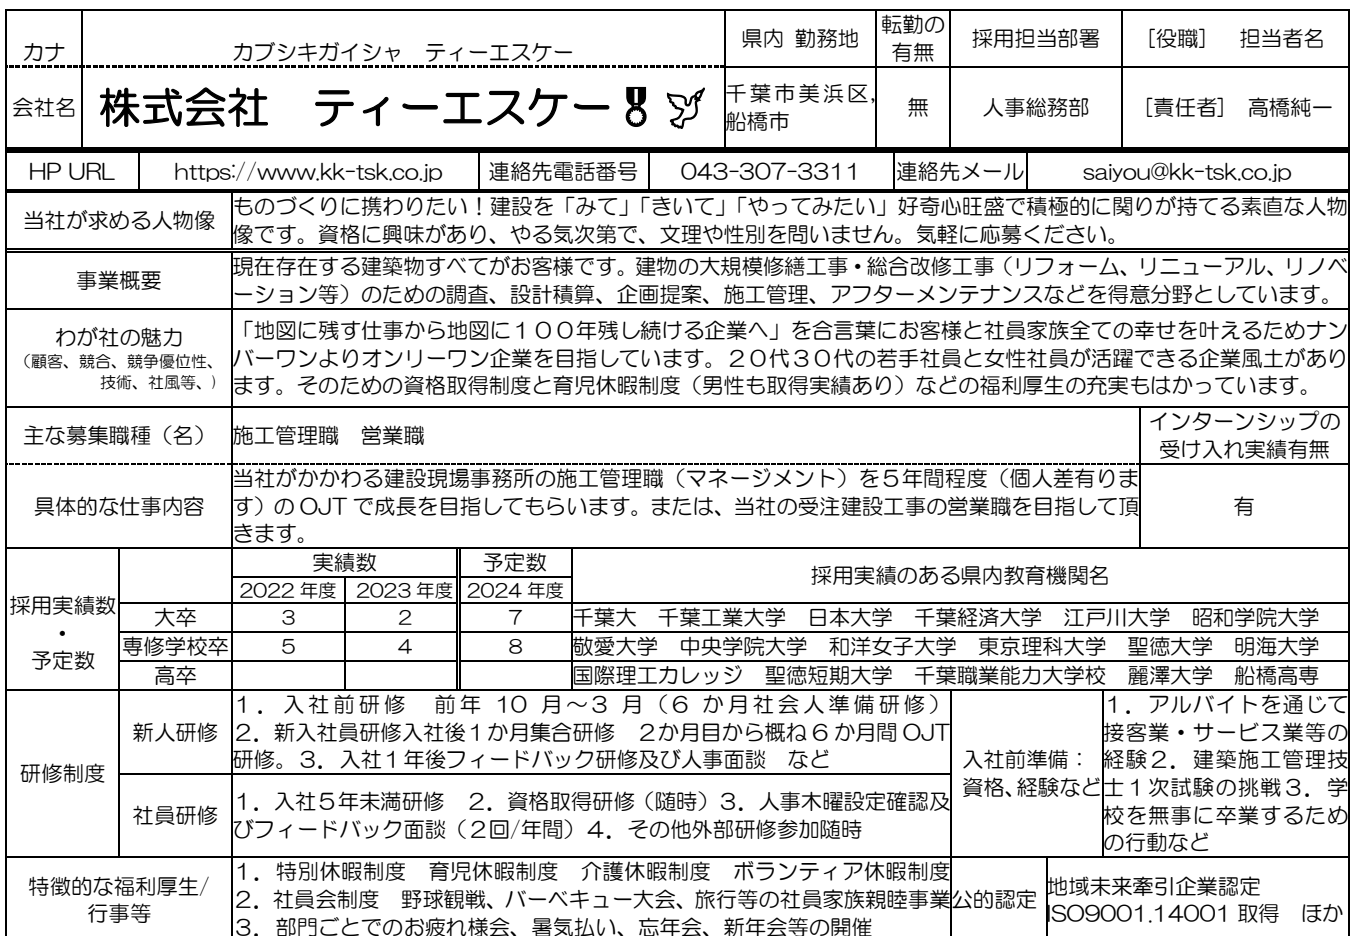 カナ　カブシキガイシャ　ティーエスケー　県内 勤務地　転勤の有無　採用担当部署　［役職］　担当者名
会社名　株式会社　ティーエスケー🎖🕊　千葉市美浜区,船橋市　無　人事総務部　［責任者］　高橋純一
HP URL　https://www.kk-tsk.co.jp　連絡先電話番号　043-307-3311　連絡先メール　saiyou@kk-tsk.co.jp
当社が求める人物像
ものづくりに携わりたい！建設を「みて」「きいて」「やってみたい」好奇心旺盛で積極的に関りが持てる素直な人物
像です。資格に興味があり、やる気次第で、文理や性別を問いません。気軽に応募ください。
事業概要
現在存在する建築物すべてがお客様です。建物の大規模修繕工事・総合改修工事（リフォーム、リニューアル、リノベ
ーション等）のための調査、設計積算、企画提案、施工管理、アフターメンテナンスなどを得意分野としています。
わが社の魅力
（顧客、競合、競争優位性、
技術、社風等、）
「地図に残す仕事から地図に１００年残し続ける企業へ」を合言葉にお客様と社員家族全ての幸せを叶えるためナン
バーワンよりオンリーワン企業を目指しています。２０代３０代の若手社員と女性社員が活躍できる企業風土があり
ます。そのための資格取得制度と育児休暇制度（男性も取得実績あり）などの福利厚生の充実もはかっています。
主な募集職種（名）　施工管理職　営業職
インターンシップの
受け入れ実績有無
具体的な仕事内容
当社がかかわる建設現場事務所の施工管理職（マネージメント）を５年間程度（個人差有りま
す）の OJT で成長を目指してもらいます。または、当社の受注建設工事の営業職を目指して頂
きます。
有
採用実績数
・
予定数
実績数　予定数　採用実績のある県内教育機関名
2022 年度　2023 年度　2024 年度
大卒　3　2　7　千葉大　千葉工業大学　日本大学　千葉経済大学　江戸川大学　昭和学院大学
専修学校卒　5　4　8　敬愛大学　中央学院大学　和洋女子大学　東京理科大学　聖徳大学　明海大学
高卒　国際理工カレッジ　聖徳短期大学　千葉職業能力大学校　麗澤大学　船橋高専
研修制度
新人研修
１．入社前研修　前年 10 月～3 月（6 か月社会人準備研修）
２．新入社員研修入社後１か月集合研修　２か月目から概ね６か月間 OJT
研修。３．入社１年後フィードバック研修及び人事面談　など
社員研修
１．入社５年未満研修　２．資格取得研修（随時）３．人事木曜設定確認及
びフィードバック面談（２回/年間）４．その他外部研修参加随時
入社前準備：
資格、経験など
１．アルバイトを通じて
接客業・サービス業等の
経験２．建築施工管理技
士１次試験の挑戦３．学
校を無事に卒業するため
の行動など
特徴的な福利厚生/
行事等
１．特別休暇制度　育児休暇制度　介護休暇制度　ボランティア休暇制度
２．社員会制度　野球観戦、バーベキュー大会、旅行等の社員家族親睦事業
３．部門ごとでのお疲れ様会、暑気払い、忘年会、新年会等の開催
公的認定
地域未来牽引企業認定
ISO9001.14001 取得　ほか